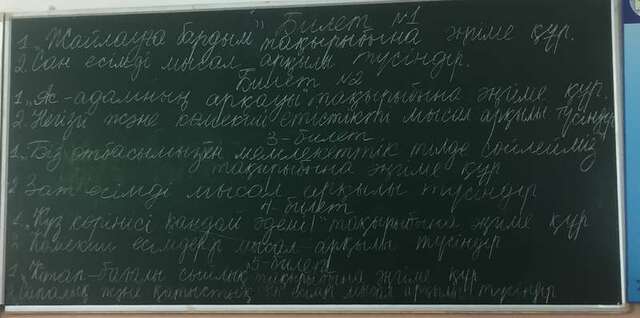 Билет №1
1. "Жайлауға бардым" тақырыбына әңгіме құр.
2. Сан есімді мысал арқылы түсіндір.
Билет №2
1. "Ас - адамның арқауы" тақырыбына әңгіме құр
2. Негізгі және көмекші етістікті мысал арқылы түсіндір
3 - билет
1. "Біз отбасымызбен мемлекеттік тілде сөйлейміз"
тақырыбына әңгіме құр
2. Зат есімді мысал арқылы түсіндір
4 - билет
1. "Күз көрінісі қандай әдемі!" тақырыбына әңгіме құр
2. Көмекші есімдер мысал арқылы түсіндір
5 - билет
1. "Кітап - бағалы сыйлық" тақырыбына әңгіме құр
2. және қатыстық сын есімді мысал арқылы түсіндір